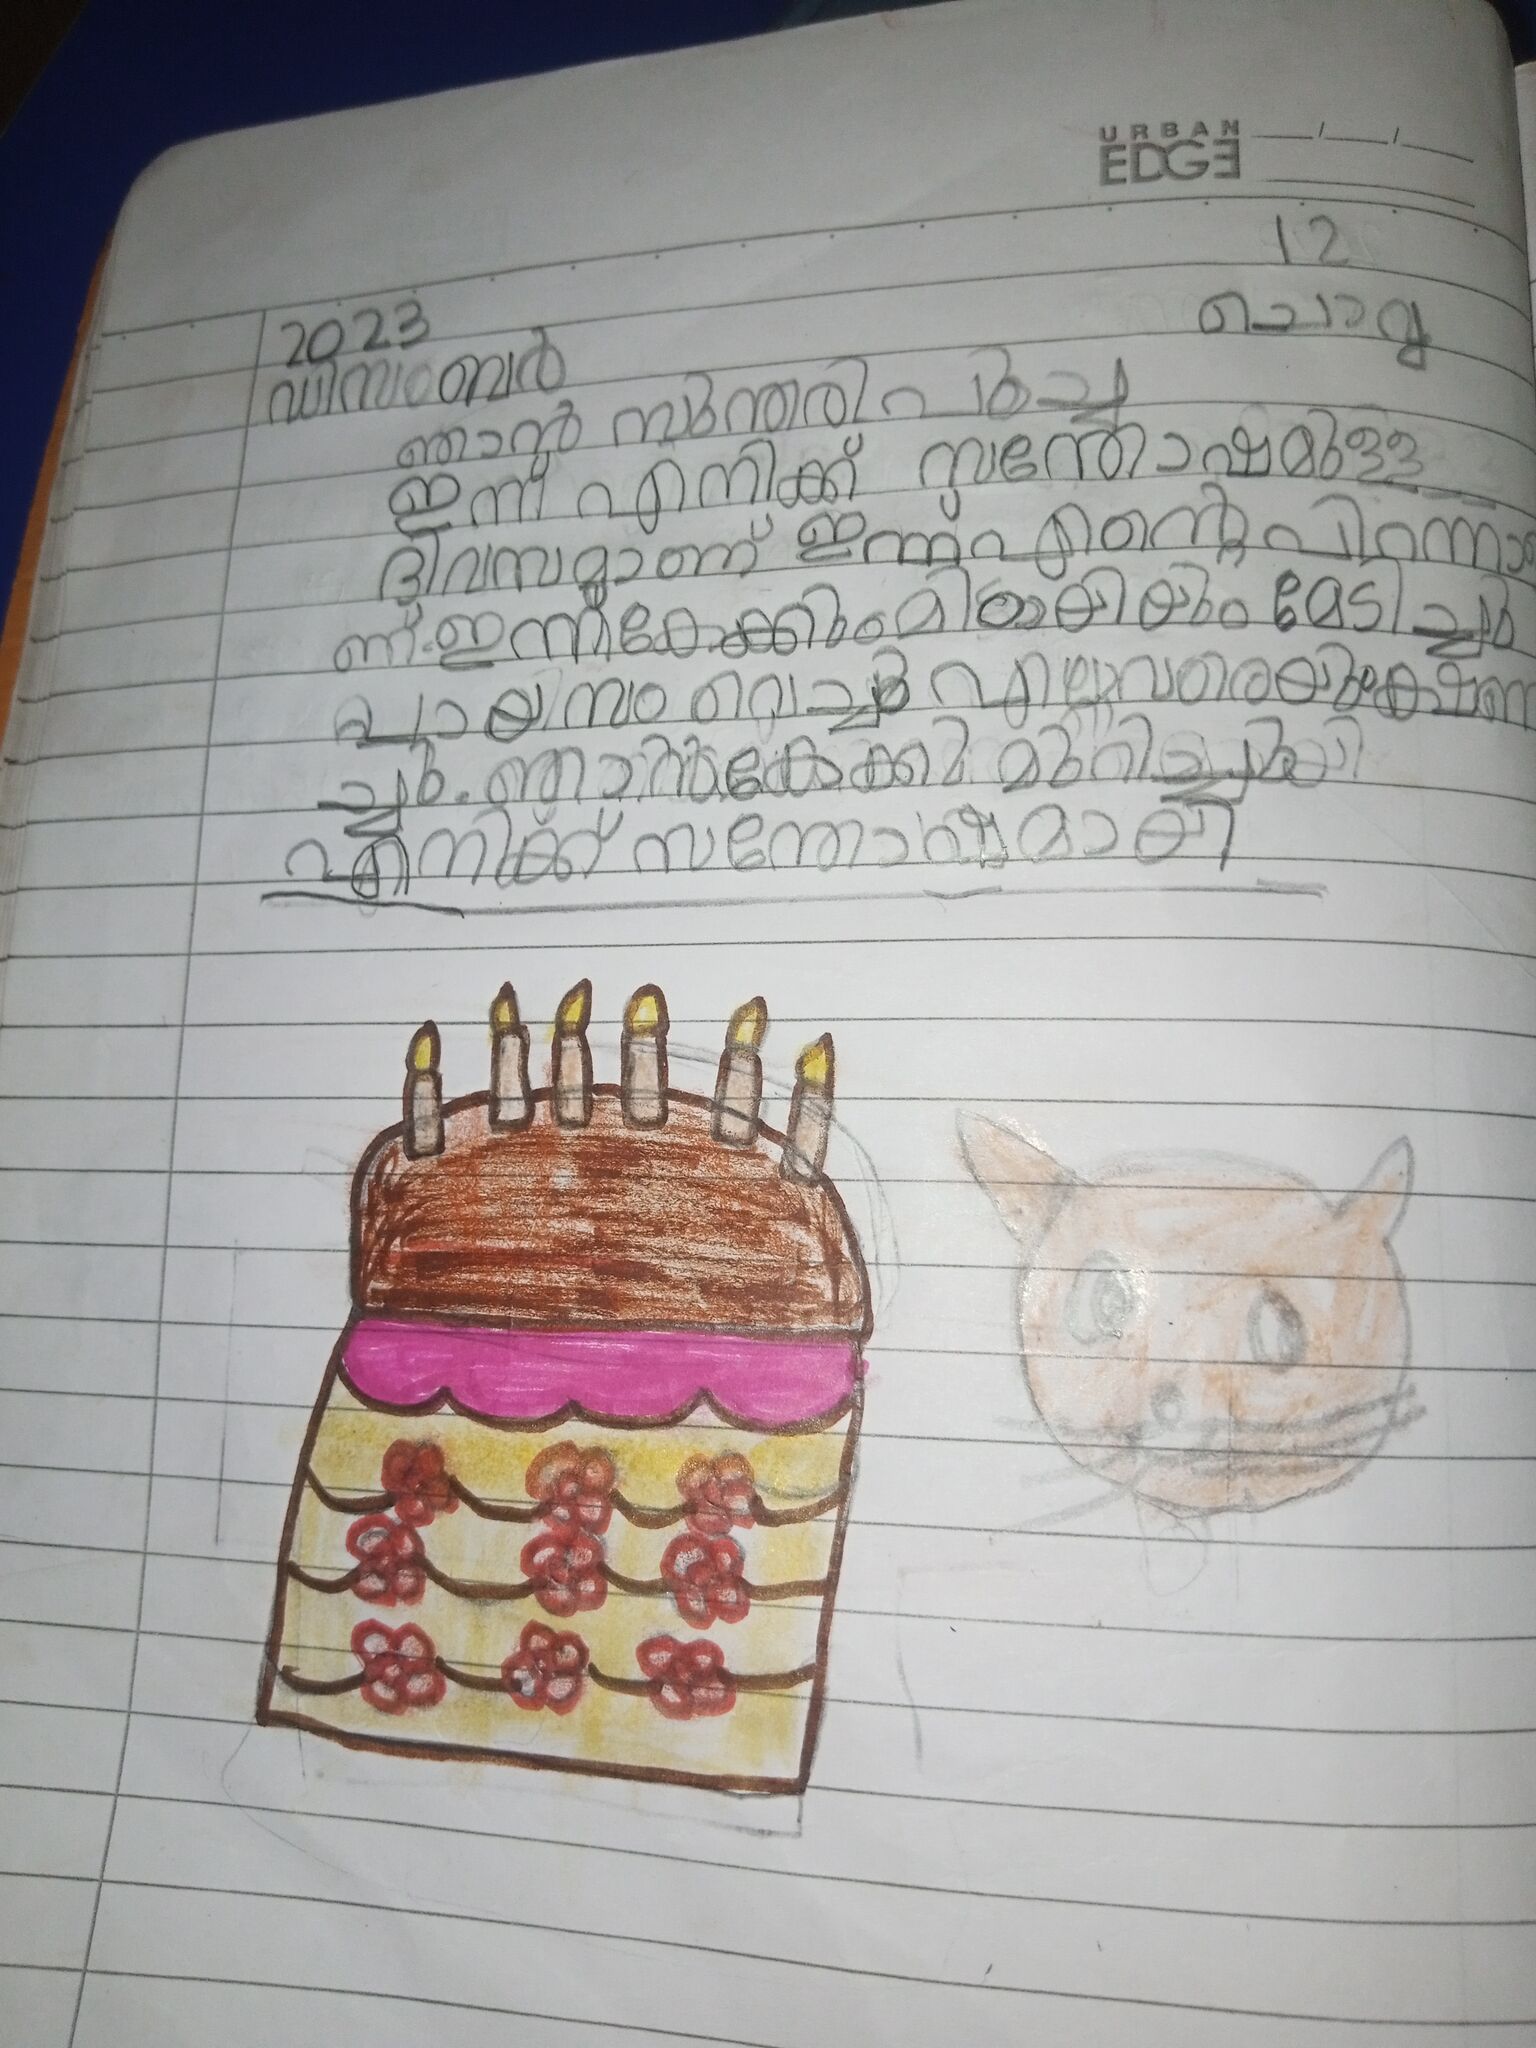 URBAN
EDGE
12
2023
ചൊവ്വ
ഡിസംബർ
ഞാൻ സുന്തരി പൂച്ച
ഇന്ന് എനിക്ക് സന്തോഷമുള്ള
ദിവസമാണ് ഇന്ന് എന്റെ പിറന്നാ
ണ്. ഇന്ന് കേക്കും മിഠായിയും മേടിച്ചു
പായിസം വെച്ചു എല്ലാവരെയും ക്ഷണി
ച്ചു. ഞാൻ കേക്ക് മുറിച്ചു
എനിക്ക് സന്തോഷമായി